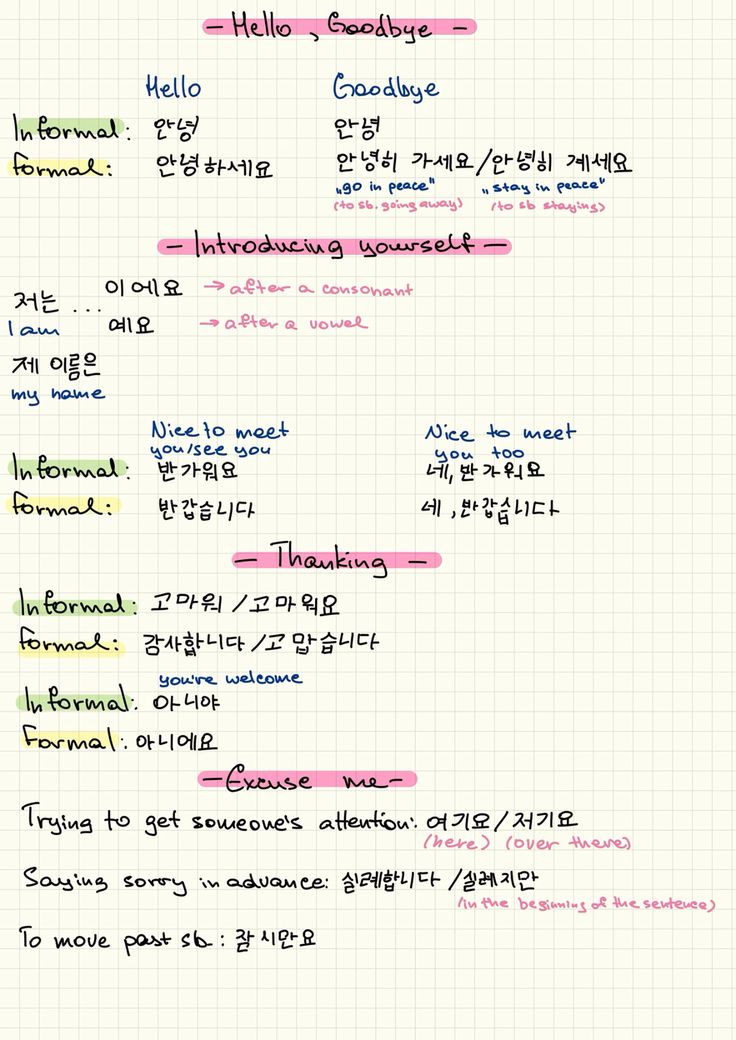 — Hello, Goodbye —
Hello Goodbye
Informal: 안녕 안녕
formal: 안녕하세요 안녕히 가세요/안녕히 계세요
„go in peace" „stay in peace"
(to sb. going away) (to sb staying)
— Introducing yourself —
저는 ... 이에요 → after a consonant
I am 예요 → after a vowel
제 이름은
my name
Nice to meet you/see you Nice to meet you too
Informal: 반가워요 네, 반가워요
formal: 반갑습니다 네, 반갑습니다
— Thanking —
Informal: 고마워 /고마워요
formal: 감사합니다 /고맙습니다
you're welcome
Informal: 아니야
Formal: 아니에요
— Excuse me —
Trying to get someone's attention: 여기요/저기요
(here) (over there)
Saying sorry in advance: 실례합니다 /실레지만
(in the beginning of the sentence)
To move past sb: 잠시만요